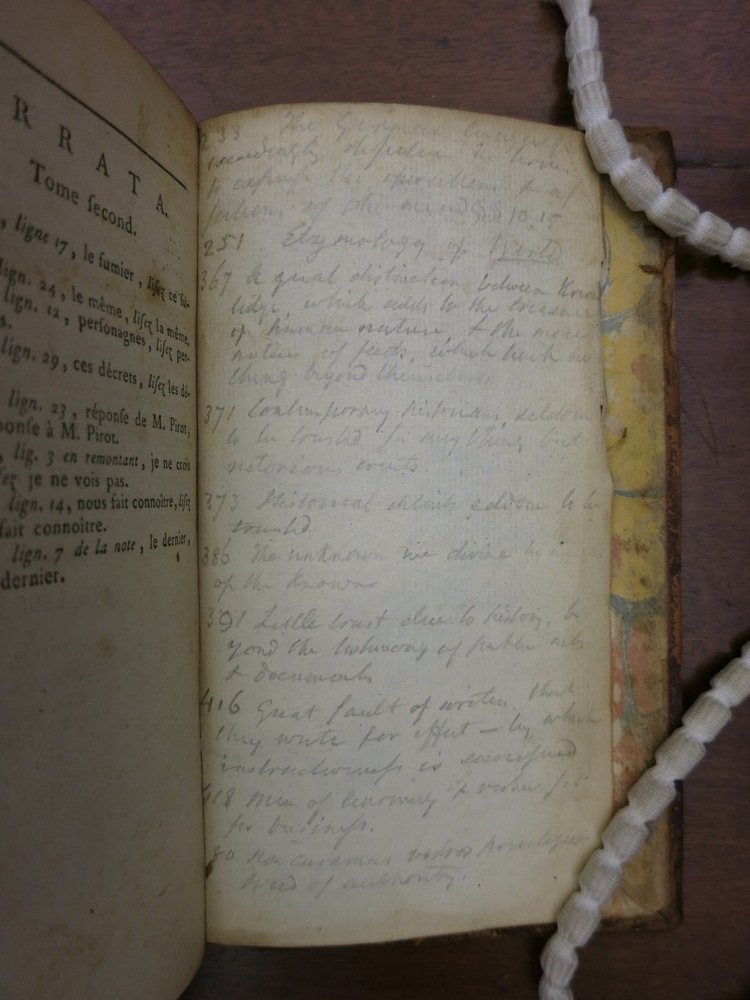 RRATA.
Tome ſecond.
, ligne 17, le fumier, liſez ce fu-
lign. 24, le même, liſez la même.
lign. 12, perſonnages, liſez per-
s.
lign. 29, ces décrets, liſez les dé-
lign. 23, réponſe de M. Pirot,
ponſe à M. Pirot.
, lig. 3 en remontant, je ne crois
ſez je ne vois pas.
lign. 14, nous fait connoître, liſez
fait connoître.
lign. 7 de la note, le dernier,
dernier.
233 The German language
exceedingly in
to express the operations & af
of the mind §§ 10, 15
251 Etymology of World
367 A great distinction between Know
ledge, which adds to the treasure
of human nature & the more
notice of facts, which teach no
thing beyond themselves
371 Contemporary historians, seldom
to be trusted for any thing but
notorious events.
373 Historical details seldom to be
trusted
386 The unknown we divine by means
of the known
391 Little trust due to history, be
yond the testimony of public acts
& documents
416 Great fault of writers that
they write for effect – by which
instructiveneſs is sacrificed
418 Men of learning & fit
for buſineſs.
Non
of authority.